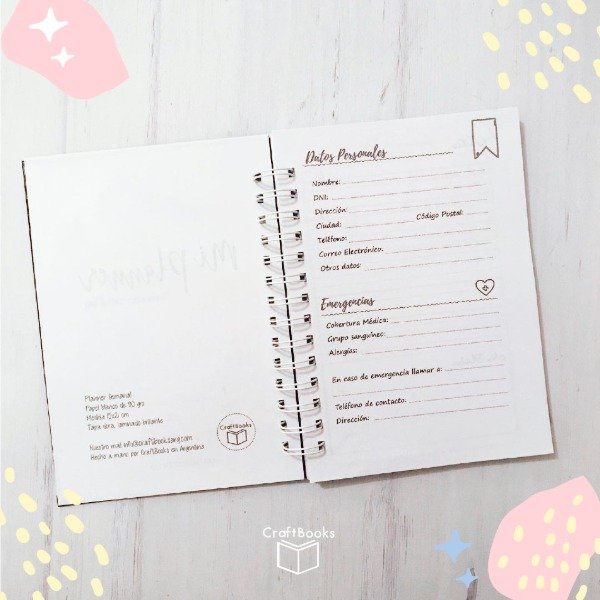 Mi planner
Planner Semanal
Papel blanco de 90 gr
Medida 15x21 cm
Tapa dura, laminado brillante
Nuestro mail: info@craftbooksarg.com
Hecho a mano por CraftBooks en Argentina
CraftBooks
Datos Personales
Nombre:
DNI:
Dirección:
Ciudad: Código Postal:
Teléfono:
Correo Electrónico:
Otros datos:
Emergencias
Cobertura Médica:
Grupo sanguíneo:
Alergias:
En caso de emergencia llamar a:
Teléfono de contacto:
Dirección:
CraftBooks